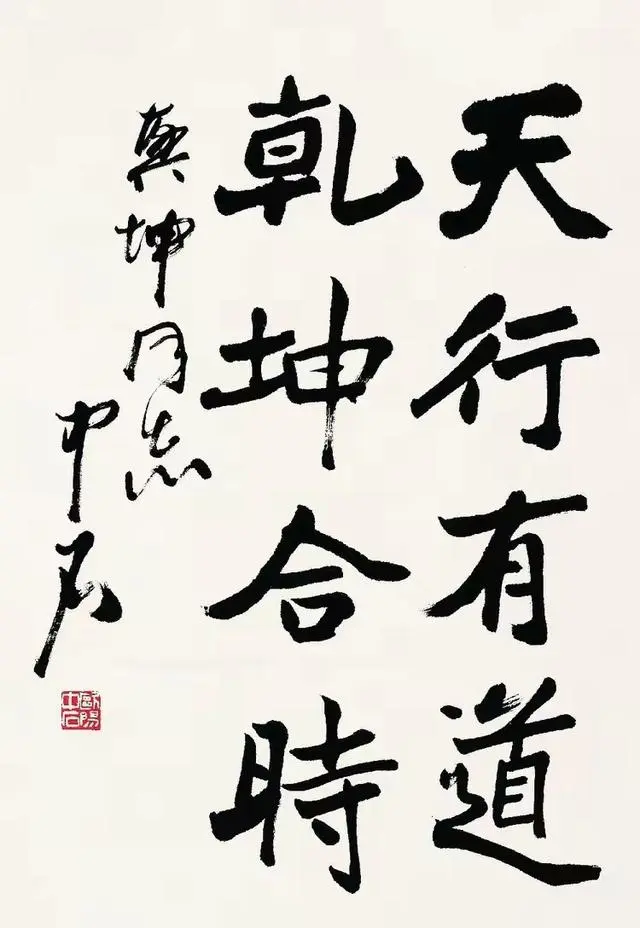 天行有道
乾坤合時
興坤同志
中石
歐陽
中石